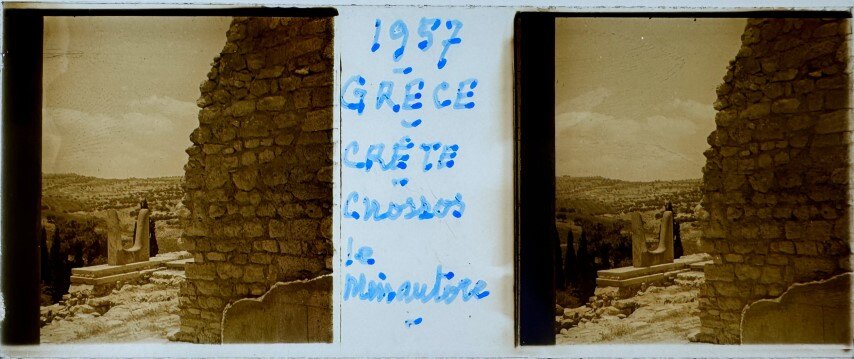 1957
GRÈCE
CRÊTE
Cnossos
le
Minautore